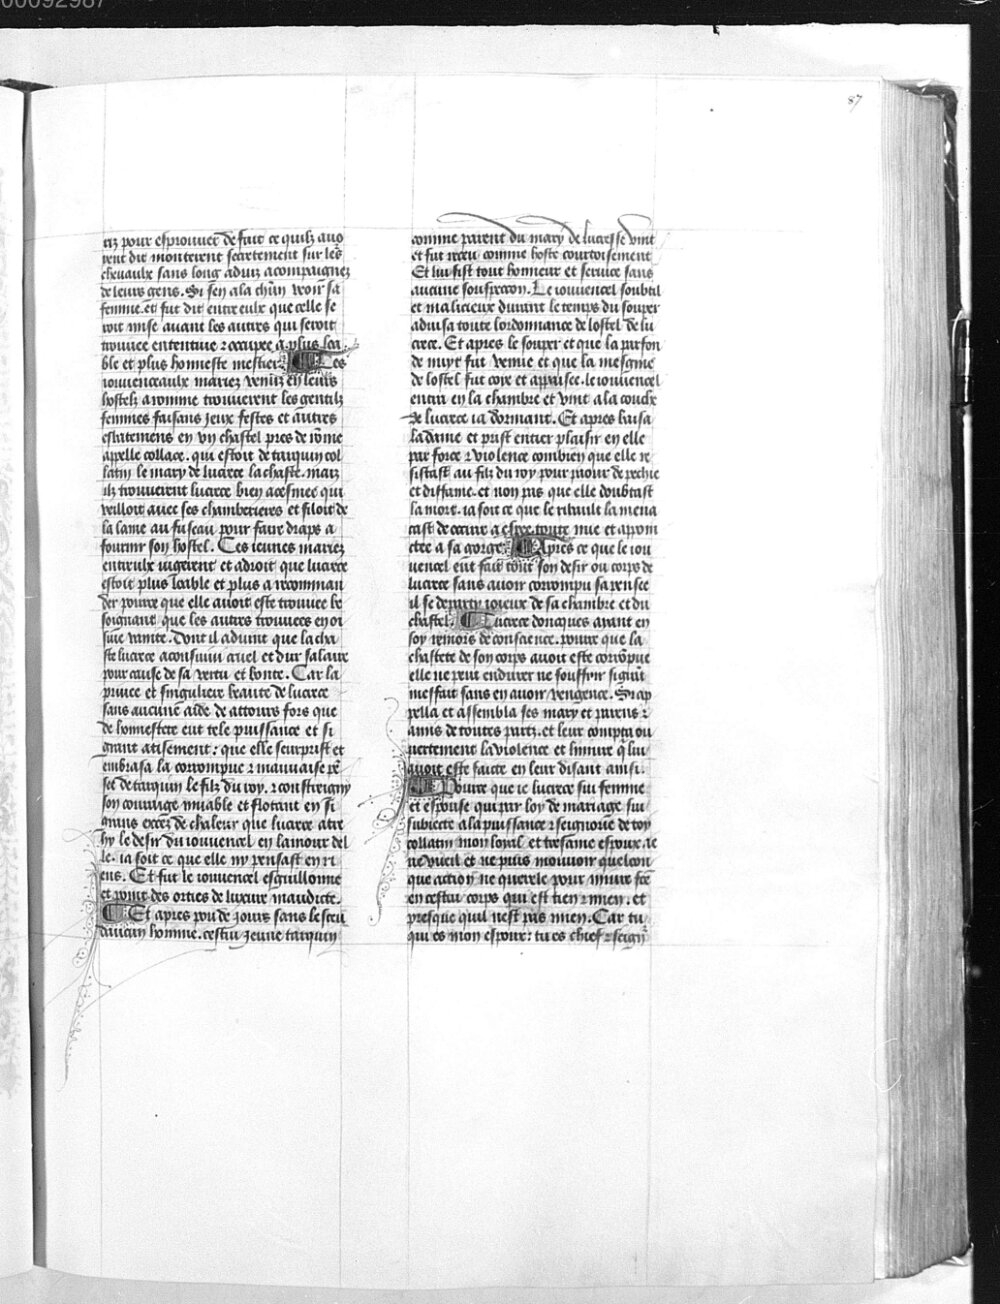 00092987
87
riz pour esprouver de fait ce quilz avo
ient dit monterent secretement sur les
chevaulx sans long aduiz acompaignez
de leurs gens. Si sen ala chũn veoir sa
femme. et fut dit entre eulx que celle se
roit mise auant les autres qui seroit
trouuee ententiue ⁊ occupee a plus loa
ble et plus honneste mestier. Les
iouuenceaulx mariez venuz en leurs
hostelz a romme trouuerent les gentilz
femmes faisans jeux festes et autres
esbatemens en vn chastel pres de rõme
apelle collace. qui estoit de tarquin col
latin le mary de lucrece la chaste. maiz
ilz trouuerent lucrece bien acesmee qui
veilloit auec ses chamberieres et filoit de
la laine au fuseau pour faire draps a
fournir son hostel. Ces ieunes mariez
entreulx iugerent et a droit que lucrece
estoit plus loable et plus a recomman
der pource que elle auoit este trouuee be
soignant que les autres trouuees en oi
siue vanite. Dont il aduint que la cha
ste lucrece aconsuiui cruel et dur salaire
pour cause de sa vertu et bonte. Car la
priuee et singuliere beaute de lucrece
sans aucune aide de attours fors que
de honnestete eut tele puissance et si
grant atisement: que elle seurprist et
embrasa la corrompue ⁊ mauuaise pẽ
see de tarquin le filz du roy. ⁊ constreigny
son courage muable et flotant en si
grans excez de chaleur que lucrece atre
hy le desir du iouuencel en lamour del
le. ia soit ce que elle ny pensast en ri
ens. Et fut le iouuencel esguillonne
et point des orties de luxure maudicte.
Et apres pou de jours sans le sceu
daucun homme. cestui jeune tarquin
comme parent du mary de lucresse vint
et fut receu comme hoste courtoisement
Et lui fist tout honneur et seruice sans
aucune souspecon. Le iouuencel soubtil
et malicieux durant le temps du souper
aduisa toute lordonnance de lostel de lu
crece. Et apres le souper et que la parfon
de nuyt fut venue et que la mesgnie
de lostel fut coye et appaisee. le iouuencel
entra en la chambre et vint a la couche
de lucrece ia dormant. Et apres baisa
la dame et prist entier plaisir en elle
par force ⁊ violence combien que elle re
sistast au filz du roy pour paour de pechie
et diffame. et non pas que elle doubtast
la mort. ia soit ce que le ribault la mena
cast de occire a espee toute nue et apoin
ctee a sa gorge. Apres ce que le iou
uencel eut fait tout son desir ou corps de
lucrece sans auoir corrompu sa pensee
il se departy ioieux de sa chambre et du
chastel. Lucrece doncques ayant en
soy remors de conscience. pource que la
chastete de son corps auoit este corrõpue
elle ne peut endurer ne souffrir si grãt
meffait sans en auoir vengence. Si ap
pella et assembla ses mary et parens ⁊
amis de toutes partz. et leur compta ou
uertement la violence et liniure q̃ lui
auoit este faicte en leur disant ainsi.
Pource que ie lucrece sui femme
et espouse qui par loy de mariage sui
subiecte a la puissance ⁊ seignourie de toy
collatin mon loyal et tresame espoux. ie
ne vueil et ne puis mouuoir quelcon
que action ne querele pour iniure fcẽ
en cestui corps qui est tien ⁊ mien. et
presque quil nest pas mien. Car tu
qui es mon espoux: tu es chief ⁊ seignr̃